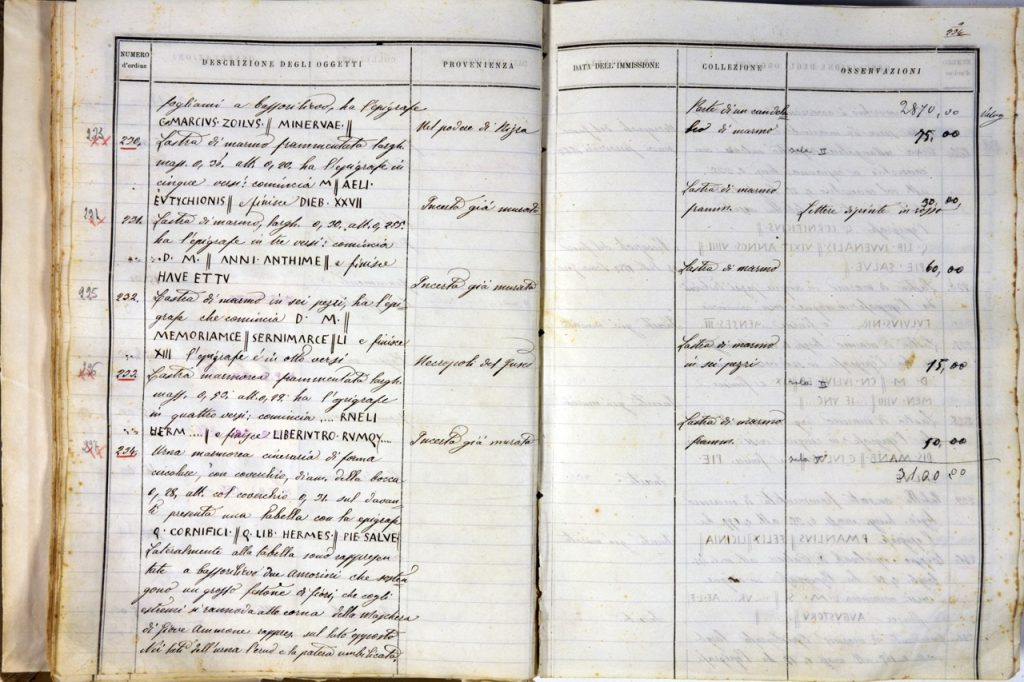 226
NUMERO d'ordine
DESCRIZIONE DEGLI OGGETTI
PROVENIENZA
DATA DELL'IMMISSIONE
COLLEZIONE
OSSERVAZIONI
fogliami a bassorilievo, ha l'epigrafe
C. MARCIUS · ZOILUS · || MINERVAE · ||
230. Lastra di marmo frammentata largh.
mass. 0, 36. alt. 0, 20. ha l'epigrafe in
cinque versi: comincia M || AELI ·
EVTYCHIONIS || e finisce DIEB · XXVII
231. Lastra di marmo, largh. 0, 30. alt. 0, 255.
ha l'epigrafe in tre versi: comincia
D. M. || ANNI · ANTHIME || e finisce
HAVE ET TV
225
232. Lastra di marmo in sei pezzi, ha l'epi
grafe che comincia D. M. ||
MEMORIAMCE || SERNIMARCE || LI e finisce
XIII l'epigrafe è in otto versi
233. Lastra marmorea frammentata largh.
mass. 0, 52. alt. 0, 12. ha l'epigrafe
in quattro versi: comincia .... RNELI
HERM .... || e finisce LIBERIVTRO · RVMQV ....
234. Urna marmorea cineraria di forma
circolare, con coverchio, diam. della bocca
0, 28, alt. col coverchio 0, 31. sul davan
ti presenta una tabella con la epigrafe
Q · CORNIFICI · || Q · LIB · HERMES · || PIE · SALVE
Lateralmente alla tabella sono rappresen
tate a bassorilievo due amorini che sosten
gono un grosso festone di fiori, che cogli
estremi si rannoda alle corna della maschera
di Giove Ammone rappres. sul lato opposto
Nei lati dell'urna l'urceo e la patera umbilicata.
Nel podere di
Incerta già murata
Incerta già murata
Necropoli del Fusco
Incerta già murata
Parte di un candela
bro di marmo
sala II
2870, 00
75, 00
Lastra di marmo
framm.
Lettere dipinte in rosso
30, 00
Lastra di marmo
60, 00
Lastra di marmo
in sei pezzi
15, 00
Lastra di marmo
framm.
50, 00
3120 00